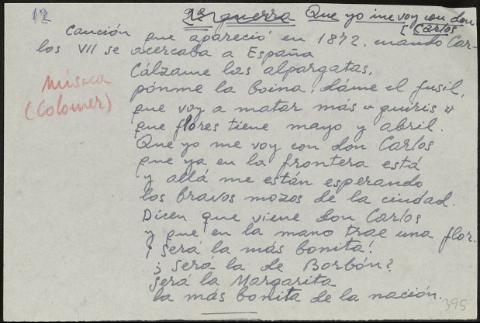 12 2ª guerra Que yo me voy con don
[Carlos
Canción que apareció en 1872, cuando Car-
los VII se acercaba a España
Cálzame las alpargatas,
ponme la boina, dáme el fusil,
que voy a matar más "guiris"
que flores tiene mayo y abril.
Que yo me voy con don Carlos
que ya en la frontera está
y allá me están esperando
los bravos mozos de la ciudad.
Dicen que viene don Carlos
y que en la mano trae una flor.
¡Será la más bonita!
¿Será la de Borbón?
Será la Margarita
la más bonita de la nación.
música
(Colomer)
395